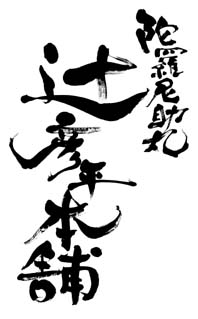 陀羅尼助丸
辻彦平本舗